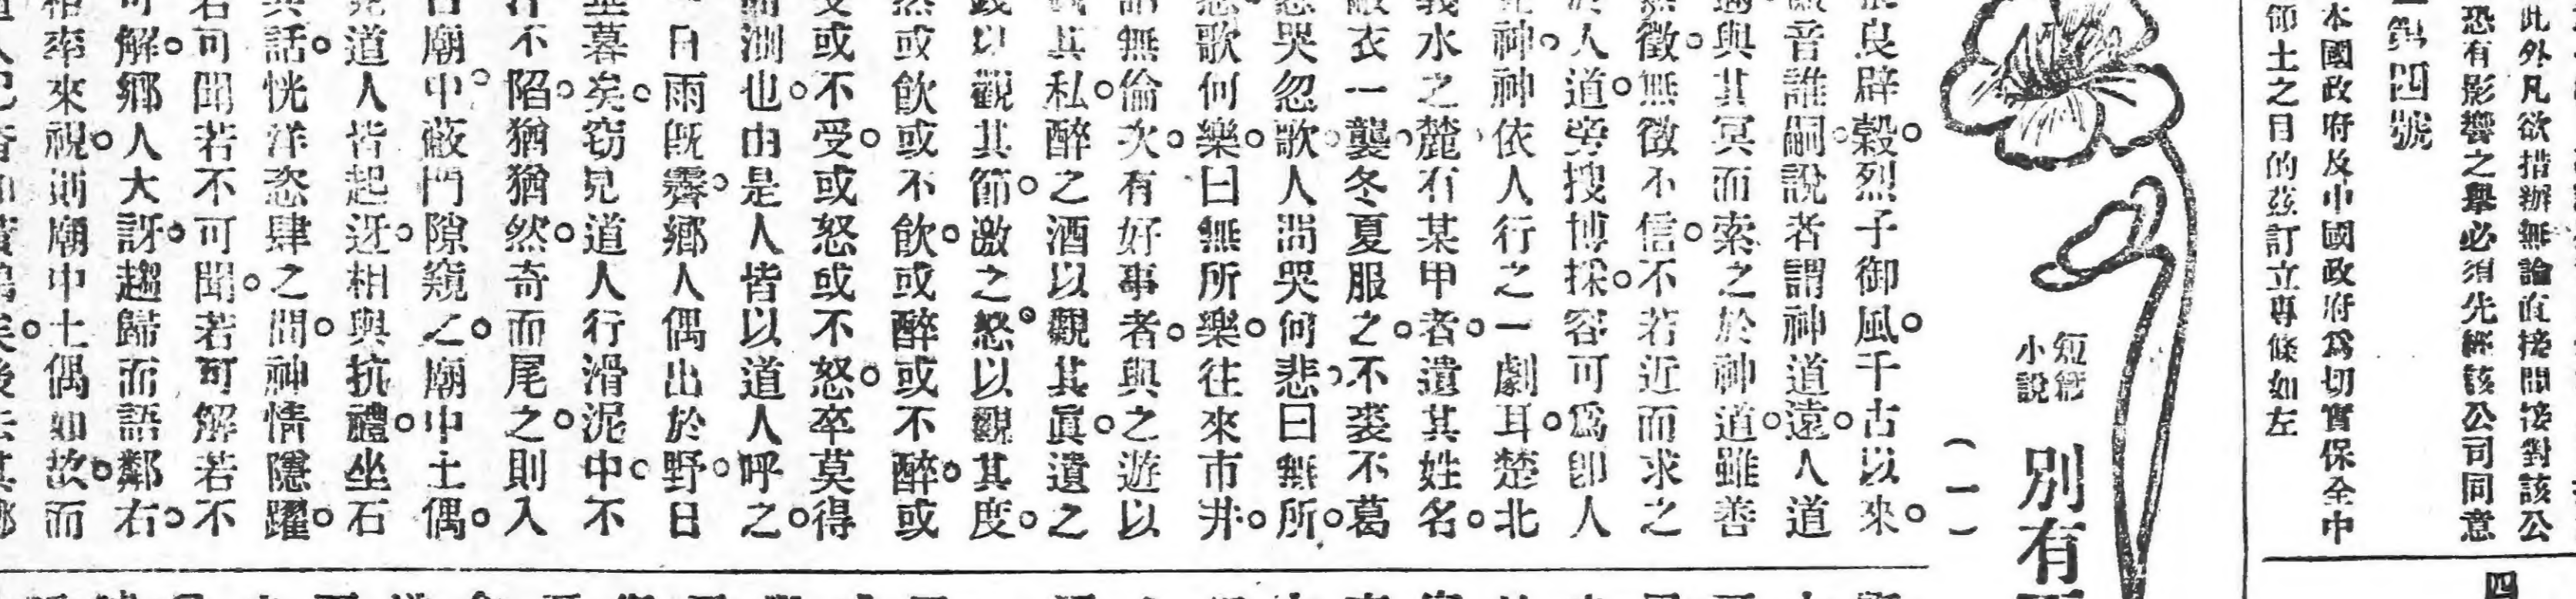 此外凡欲措辦無論直接間接對該公
恐有影響之舉必須先經該公司同意
第四號
本國政府及中國政府爲切實保全中
節土之目的茲訂立專條如左
四
短篇
小說
別有
(一)
良辟穀。烈子御風。千古以來。
音誰嗣。說者謂神道遠。人道
與其冥而索之於神道。雖善
徵。無徵不信。不若近而求之
人道。旁搜博採。容可爲卽人
神。神依人行之一劇耳。楚北
義水之麓。有某甲者。遺其姓名。
衣一襲。冬夏服之。不裘不葛
哭忽歌。人問哭何悲。曰無所。
歌何樂。曰無所樂。往來市井。
無倫次。有好事者。與之遊。以
其私。醉之酒以觀其眞。遺之
以觀其節。激之怒以觀其度。
或飲或不飲。或醉或不醉。或
受或不受。或怒或不怒。卒莫得
測也。由是人皆以道人呼之。
日雨旣霽。鄉人偶出於野。日
暮矣。窃見道人行滑泥中。不
不陷。猶猶然。奇而尾之。則入
廟中。蔽門隙窺之。廟中土偶。
道人皆起迓。相與抗禮。坐石
話。恍洋恣肆之間。神情隱躍。
若可聞若不可聞。若可解若不
可解。鄉人大訝。趨歸而語鄰右。
相率來視。則廟中土偶如故。而